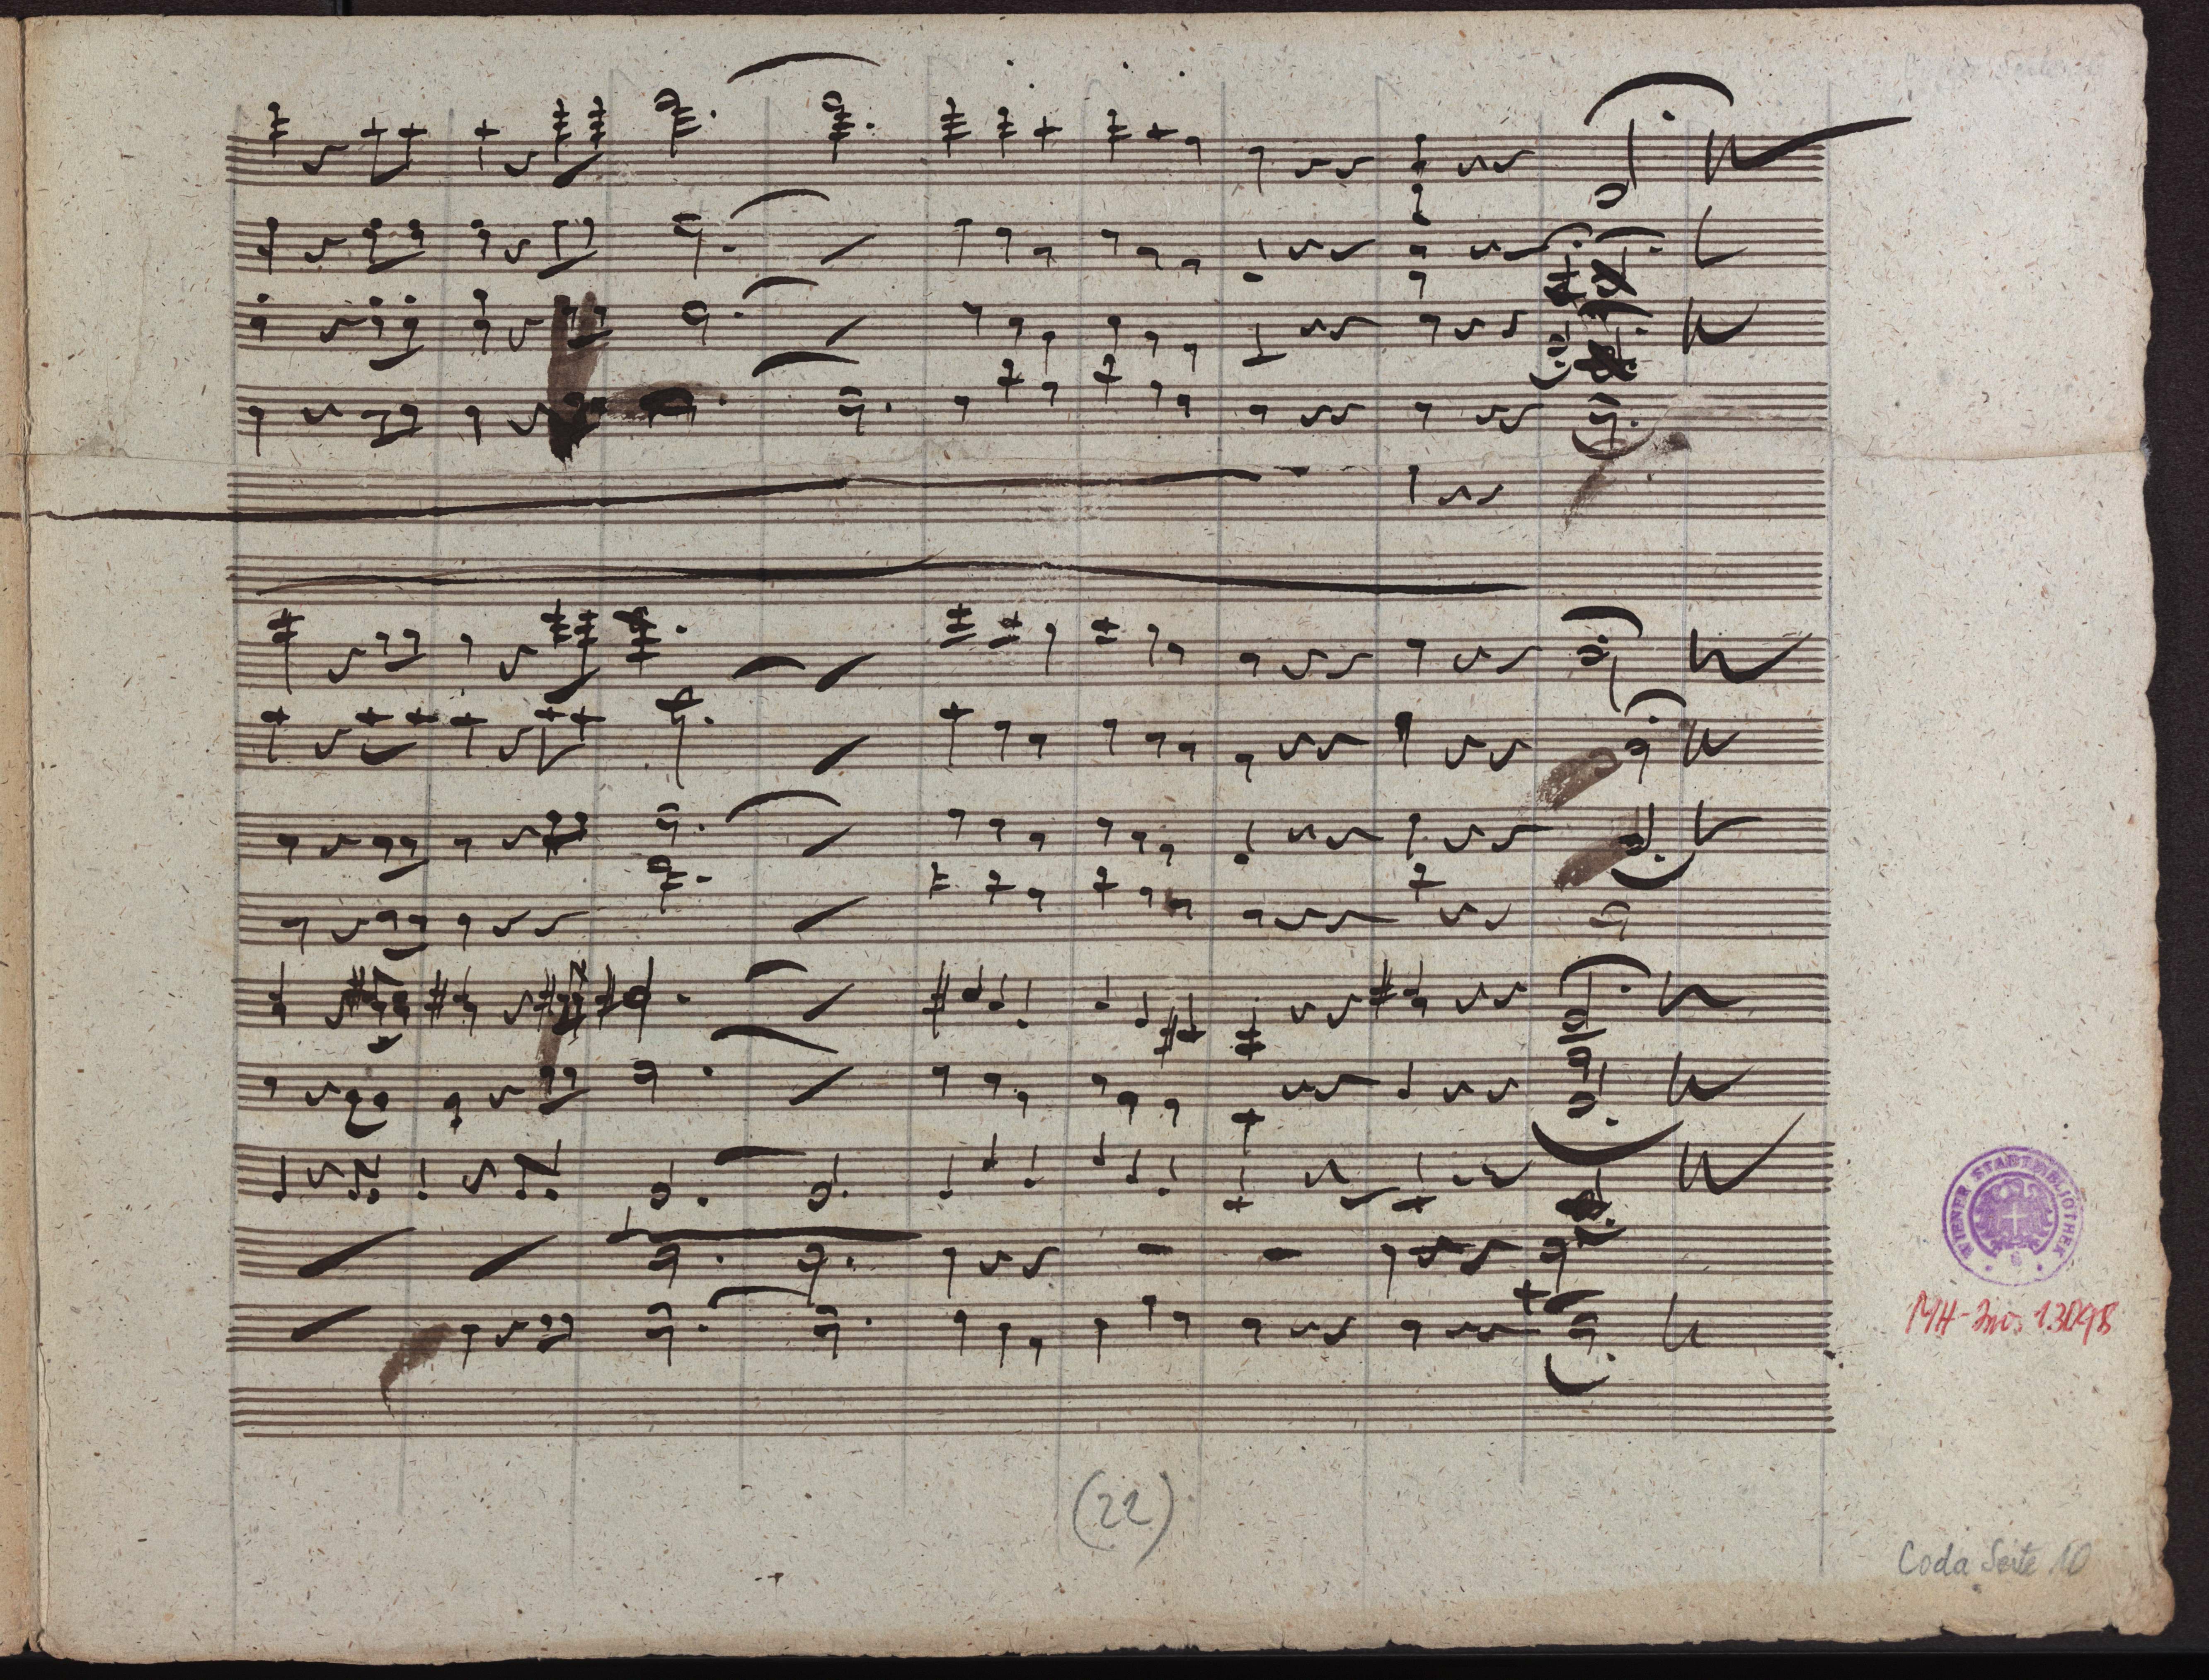 WIENER STADTBIBLIOTHEK
MH-Inv. 13098
(22)
Coda Seite 10